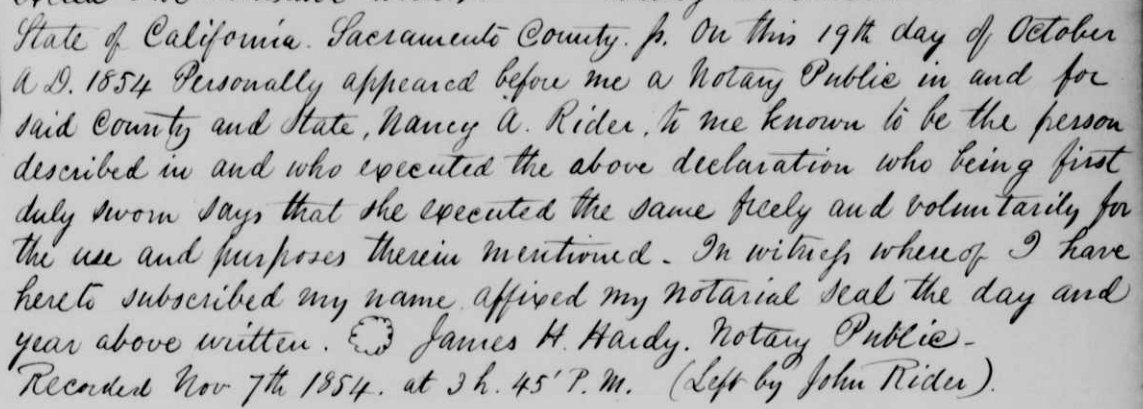 State of California. Sacramento County. ss. On this 19th day of October
A D. 1854 Personally appeared before me a Notary Public in and for
said County and State, Nancy A. Rider, to me known to be the person
described in and who executed the above declaration who being first
duly sworn says that she executed the same freely and voluntarily for
the use and purposes therein mentioned - In witness whereof I have
hereto subscribed my name affixed my Notarial seal the day and
year above written. James H. Hardy. Notary Public -
Recorded Nov 7th 1854. at 3 h. 45' P.M. (Left by John Rider).